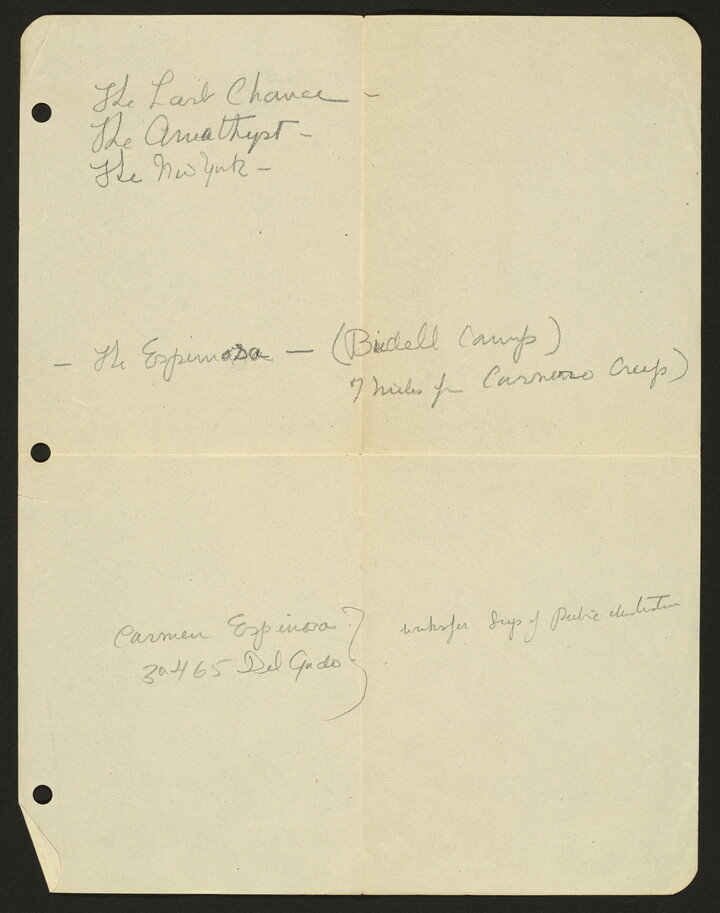 The Last Chance –
The Amethyst –
The New York –
– The Espinoza – (Bidell Camp)
7 miles fr Carnero Creek)
Carmen Espinosa
465 Del Gado
works for Supt of Public